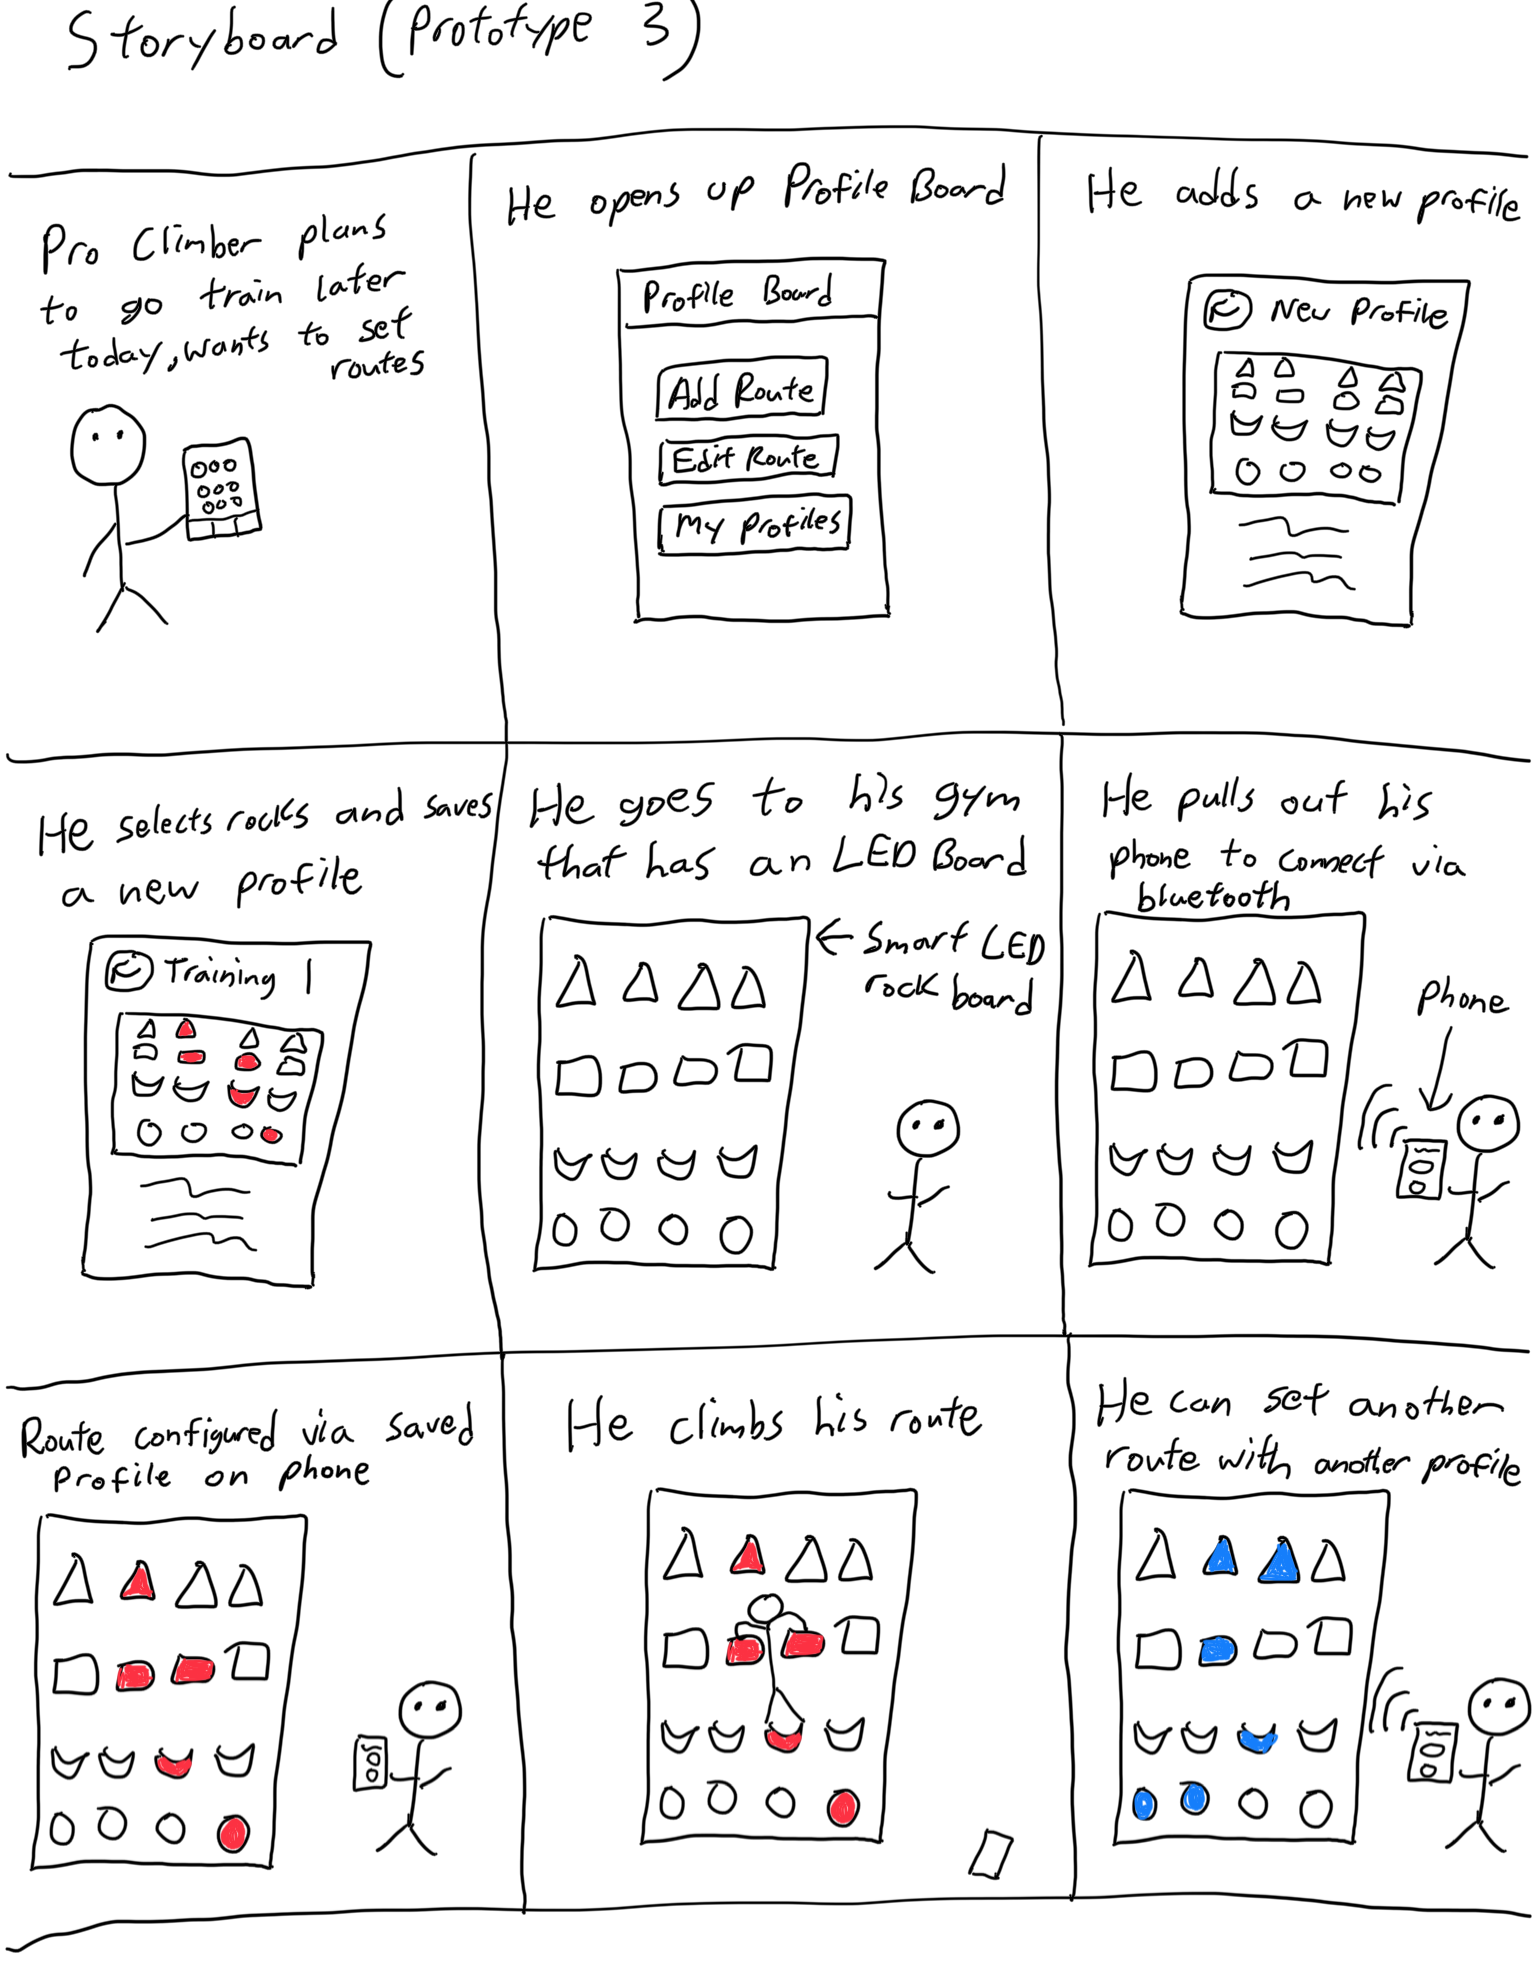 Storyboard (Prototype 3)
Pro Climber plans
to go train later
today, wants to set
routes
He opens up Profile Board
Profile Board
Add Route
Edit Route
My Profiles
He adds a new profile
New Profile
He selects rocks and saves
a new profile
Training 1
He goes to his gym
that has an LED Board
← Smart LED
rock board
He pulls out his
phone to connect via
bluetooth
Phone
Route configured via saved
Profile on phone
He climbs his route
He can set another
route with another profile